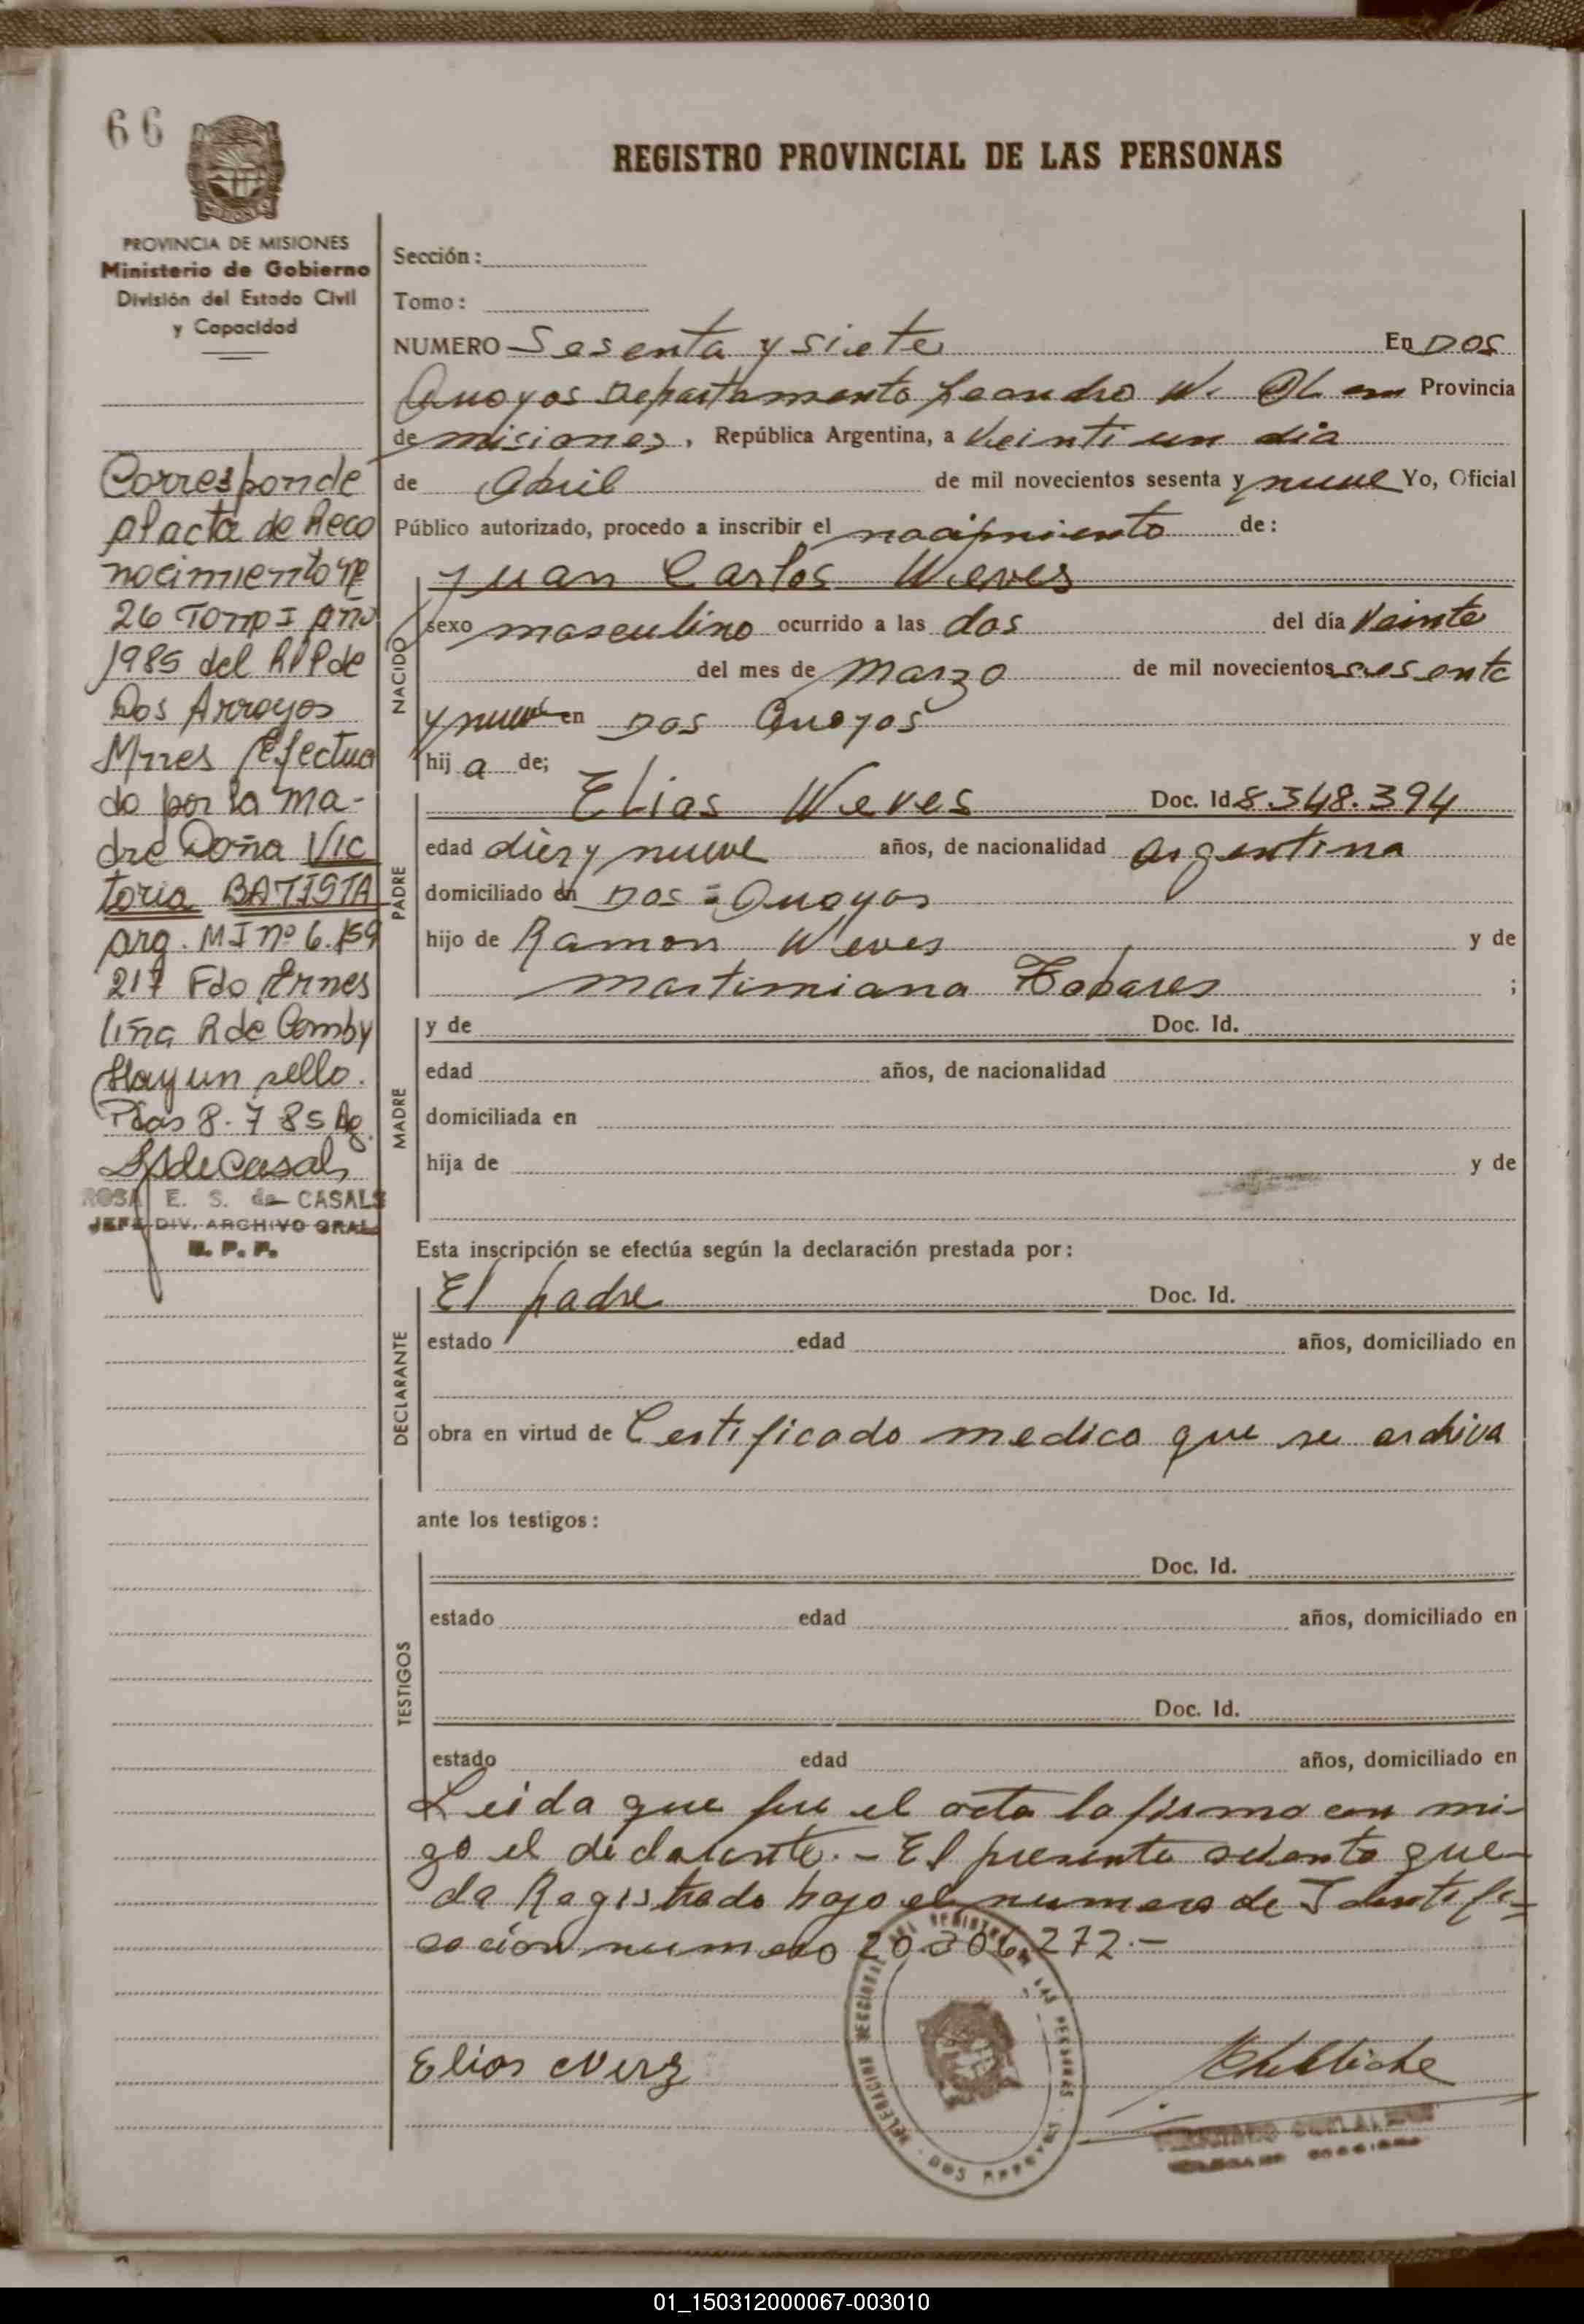 66
REGISTRO PROVINCIAL DE LAS PERSONAS
PROVINCIA DE MISIONES
Ministerio de Gobierno
División del Estado Civil
y Capacidad
Corresponde
al acta de Reco
nocimiento Nº
26 Tomo I Año
1985 del RPP de
Dos Arroyos
Mnes Efectua
do por la ma-
dre Doña Vic
toria BATISTA
Arg. MI nº 6.159
217 Fdo Ernes
tina R de Comby
Hay un sello.
Pdas 8-7 85 Ag.
ROSA E. S. de CASALS
JEFE DIV. ARCHIVO GRAL
R. P. P.
Sección:
Tomo:
NUMERO Sesenta y siete En Dos
Arroyos Departamento Leandro N. Alem Provincia
de Misiones, República Argentina, a Veinti un dia
de Abril de mil novecientos sesenta y nueve Yo, Oficial
Público autorizado, procedo a inscribir el nacimiento de:
NACIDO
Juan Carlos Neves
sexo masculino ocurrido a las dos del día Veinte
del mes de Marzo de mil novecientos sesenta
y nueve en Dos Arroyos
hij a de;
PADRE
Elias Neves Doc. Id 8.348.394
edad diez y nueve años, de nacionalidad argentina
domiciliado en Dos = Arroyos
hijo de Ramon Neves y de
Martimiana Tabares ;
MADRE
y de Doc. Id.
edad años, de nacionalidad
domiciliada en
hija de y de
Esta inscripción se efectúa según la declaración prestada por:
DECLARANTE
El padre Doc. Id.
estado edad años, domiciliado en
obra en virtud de Certificado medico que se archiva
ante los testigos:
TESTIGOS
Doc. Id.
estado edad años, domiciliado en
Doc. Id.
estado edad años, domiciliado en
Leida que fue el acta la firma con mi-
go el declarante. - El presente asiento que-
da Registrado bajo el numero de Identifi-
cacion numero 20.306.272.-
Elias
DOS ARROYOS
01_150312000067-003010